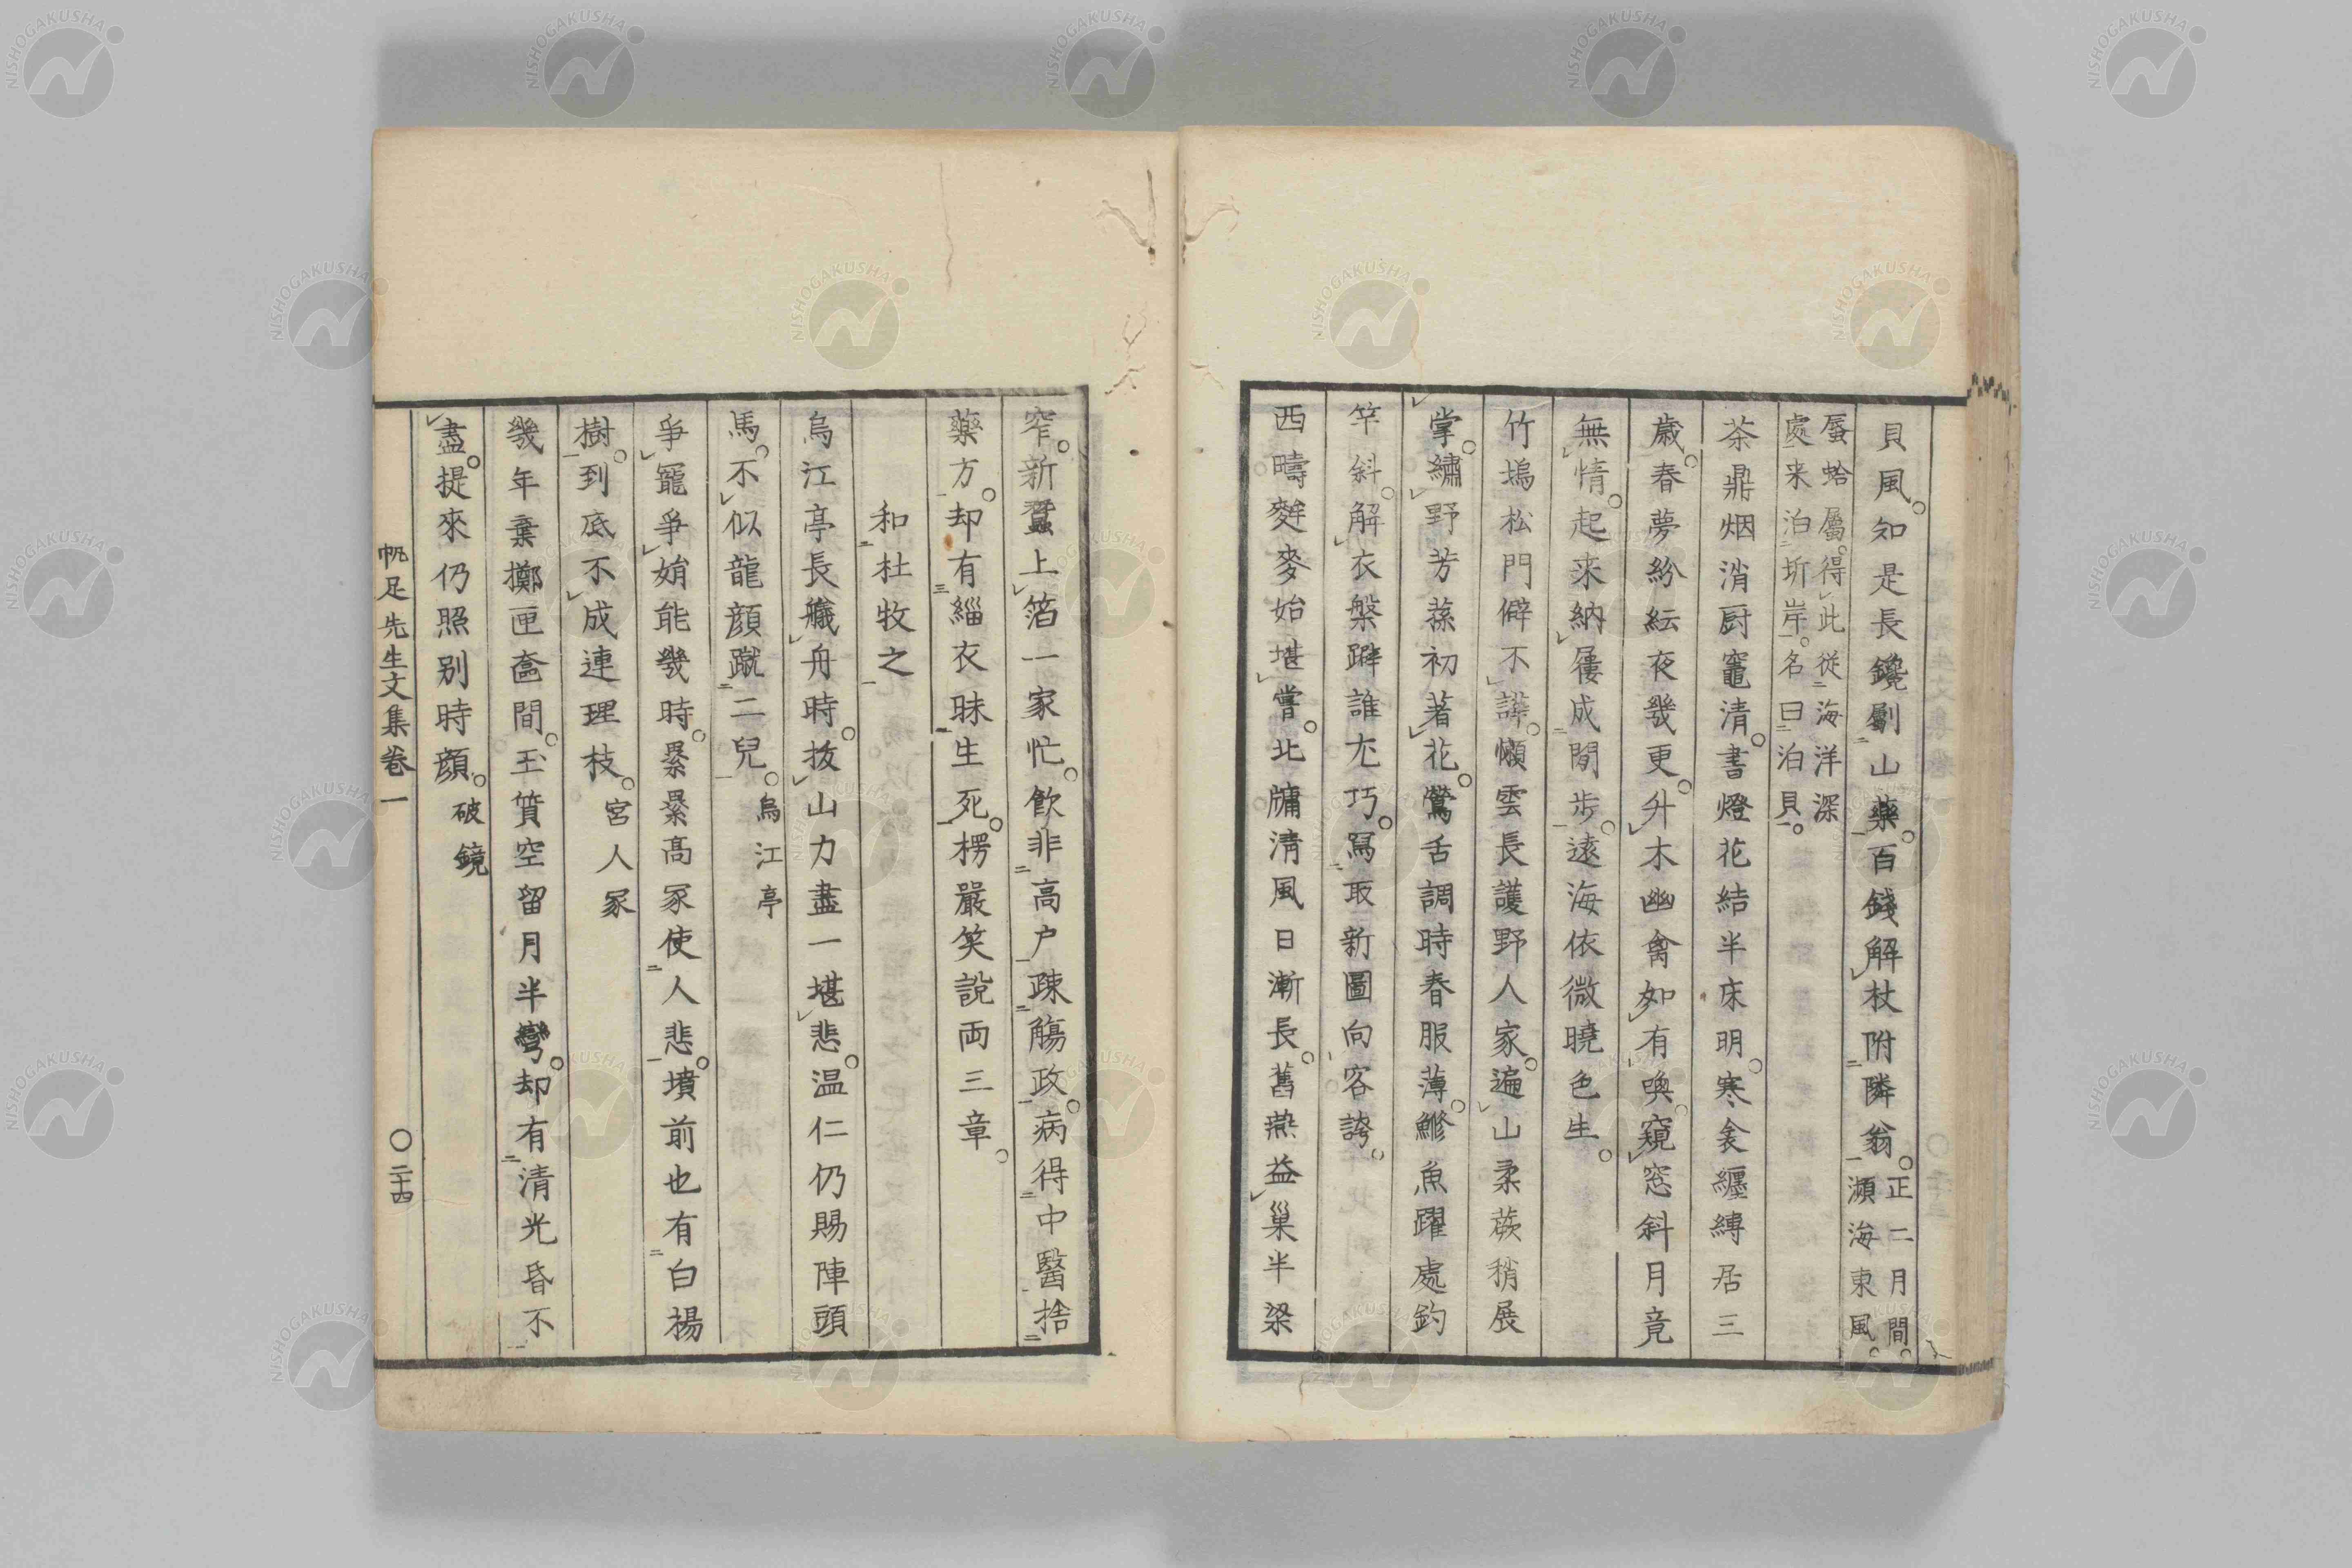 貝風。知是長鑱劚山藥。百錢解杖附隣翁。正二月間。瀕海東風。
蜃蛤屬。得此從海洋深
處来泊圻岸。名曰泊貝。
茶鼎烟消厨竈清。書燈花結半床明。寒衾纏縛居三
歳。春夢紛紜夜幾更。升木幽禽如有喚。窺窓斜月竟
無情。起来納屨成閒步。遠海依微曉色生。
竹塢松門僻不譁。懶雲長護野人家。遍山柔蕨稍展
掌。繡野芳蓀初著花。鶯舌調時春服薄。鰺魚躍處釣
竿斜。解衣槃礴誰尤巧。冩取新圖向客誇。
西疇麰麥始堪嘗。北牖清風日漸長。舊燕益巢半梁
窄。新蠶上箔一家忙。飲非高户疎觴政。病得中醫捨
藥方。却有緇衣昧生死。楞嚴笑說両三章。
和杜牧之
烏江亭長艤舟時。抜山力盡一堪悲。温仁仍賜陣頭
馬。不似龍顔蹴二兒。烏江亭
爭寵爭娋能幾時。纍纍高冢使人悲。墳前也有白楊
樹。到底不成連理枝。宮人冢
幾年棄擲匣奩間。玉質空留月半彎。却有清光昏不
盡。提來仍照别時顔。破鏡
帆足先生文集卷一
〇二十四
NISHOGAKUSHA